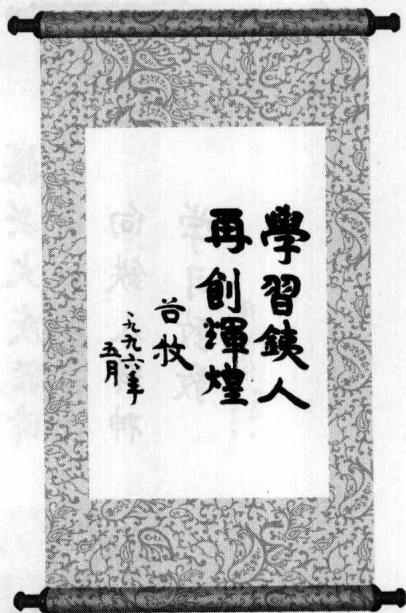 學習鐵人
再創輝煌
谷牧
一九九六年
五月